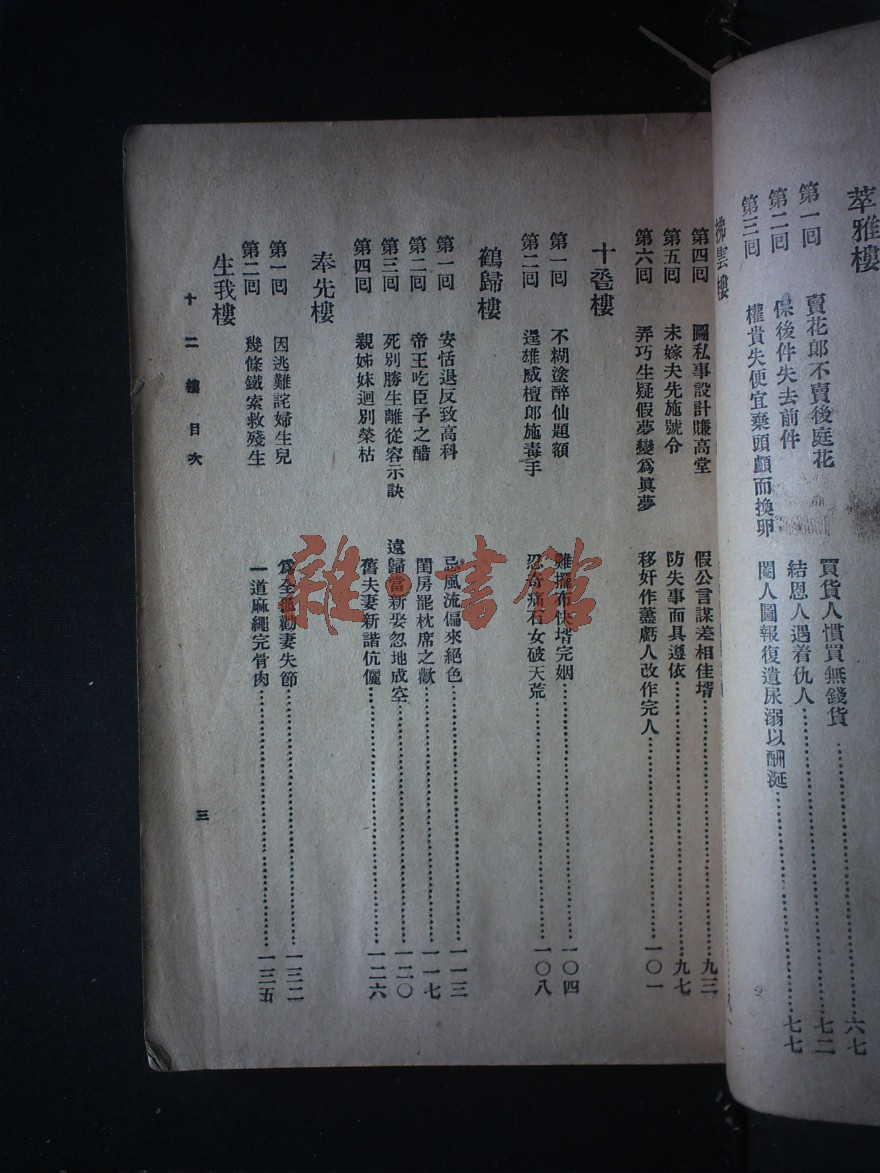 萃雅樓
第一回 賣花郎不賣後庭花 買貨人慣買無錢貨 六七
第二回 保後件失去前件 結恩人遇着仇人 七二
第三回 權貴失便宜棄頭顱而換卵 閹人圖報復遺尿溺以酬涎 七七
拂雲樓
第四回 圖私事設計賺高堂 假公言謀差相佳壻 九三
第五回 未嫁夫先施號令 防失事面具遵依 九七
第六回 弄巧生疑假夢變爲真夢 移奸作藎虧人改作完人 一〇一
十巹樓
第一回 不糊塗醉仙題額 難擺布快壻完姻 一〇四
第二回 逞雄威檀郎施毒手 忍奇痛石女破天荒 一〇八
鶴歸樓
第一回 安恬退反致高科 忌風流偏來絕色 一一三
第二回 帝王吃臣子之醋 閨房罷枕席之歡 一一七
第三回 死別勝生離從容示訣 遠歸當新娶忽地成空 一二〇
第四回 親姊妹迴別榮枯 舊夫妻新諧伉儷 一二六
奉先樓
第一回 因逃難詫婦生兒 爲全孤勸妻失節 一三二
第二回 幾條鐵索救殘生 一道麻繩完骨肉 一三五
生我樓
十二樓 目次 三
雜·書館